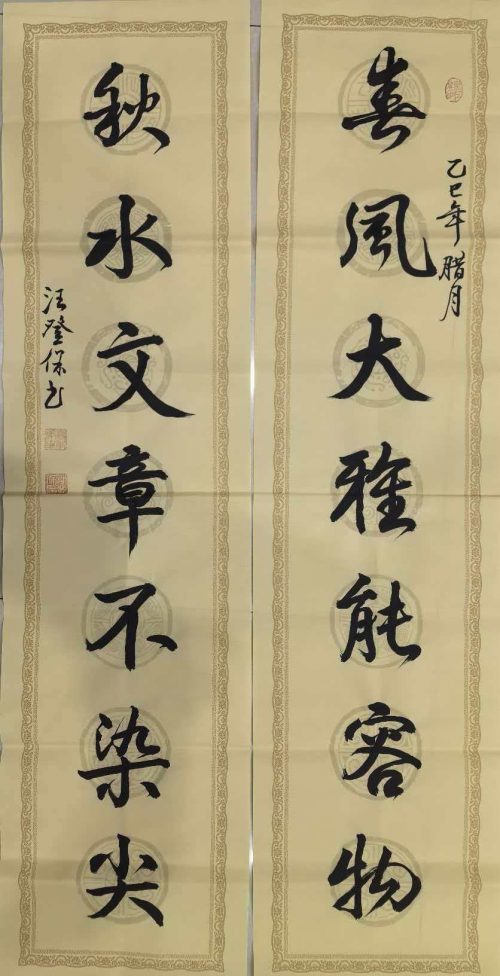 春風大雅能容物
乙巳年 腊月
秋水文章不染尖
汪登保书